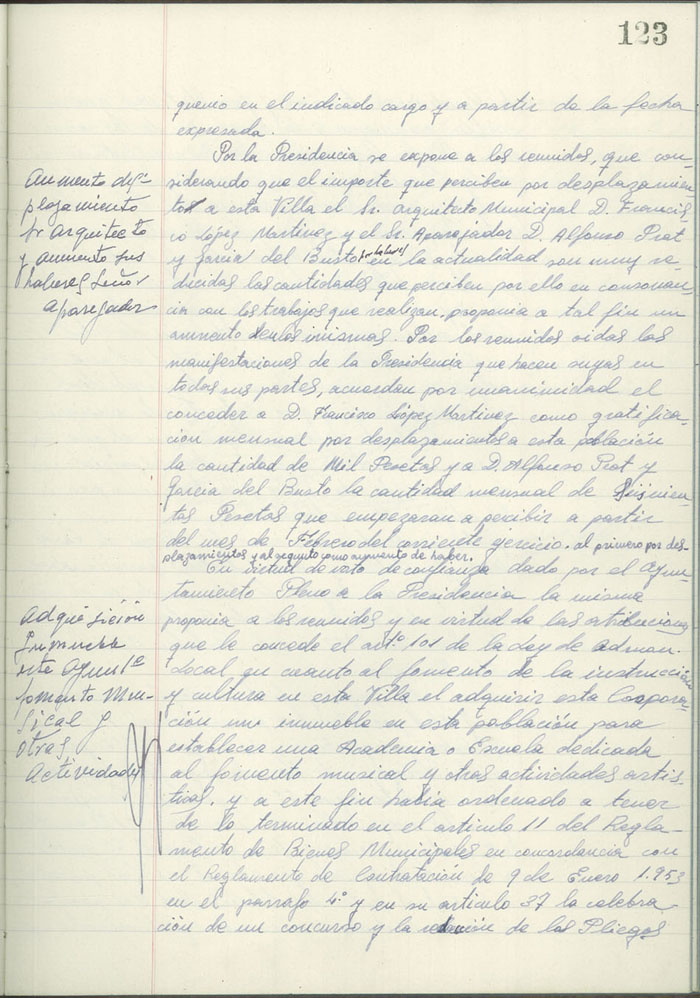 123
quenio en el indicado cargo y a partir de la fecha
expresada.
Por la Presidencia se expone a los reunidos, que con-
siderando que el importe que perciben por desplazamien
tos a esta Villa el Sr. Arquitecto Municipal D. Francis-
co López Martinez y el Sr. Aparejador D. Alfonso Prat
y Garcia del Busto por haberes en la actualidad son muy re-
ducidas las cantidades que perciben por ello en consonan-
cia con los trabajos que realizan. proponia a tal fin un
aumento de los mismas. Por los reunidos oidas las
manifestaciones de la Presidencia que hacen suyas en
todas sus partes, acuerdan por unanimidad el
conceder a D. Francisco López Martinez como gratifica-
ción mensual por desplazamientos a esta población
la cantidad de Mil Pesetas y a D. Alfonso Prat y
Garcia del Busto la cantidad mensual de Quinien-
tas Pesetas que empezaran a percibir a partir
del mes de Febrero del corriente ejercicio. al primero por des-
plazamientos y al segundo como aumento de haber.
En virtud de voto de confianza dado por el Ayun
tamiento Pleno a la Presidencia la misma
proponia a los reunidos y en virtud de las atribuciones
que le concede el artº 101 de la Ley de Admon.
Local en cuanto al fomento de la instrucción
y cultura en esta Villa el adquirir esta Corpora-
ción un inmueble en esta población para
establecer una Academia o Escuela dedicada
al fomento musical y otras actividades artis-
ticas. y a este fin habia ordenado a tenor
de lo terminado en el articulo 11 del Regla-
mento de Bienes Municipales en concordancia con
el Reglamento de Contratación de 9 de Enero 1.953
en el parrafo 4º y en su articulo 37 la celebra
ción de un concurso y la redacción de los Pliegos
Aumento des-
plazamiento
Sr Arquitecto
y aumento sus
haberes Señor
Aparejador
Adquisición
Inmueble
este Ayuntº
fomento Mu-
sical y
otras
Actividades